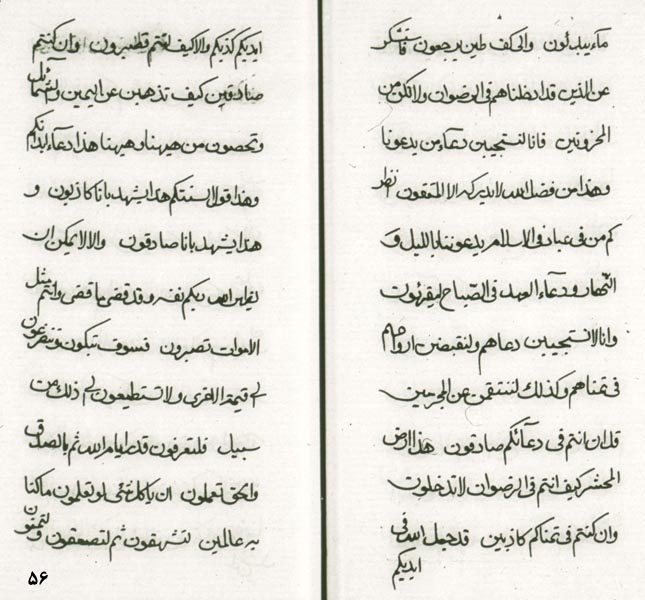 ماء يبدئون والى كف طين يرجعون فاشكر
عن الذين قد ادخلناهم فى الرضوان ولا تكن من
المحزونين فانا لنستجيبن دعاء من يدعونا
وهذا من فضل الله لا يدركه الا المتقون انظر
كم من فى عباد فى الاسلام يدعوننا بالليل و
النهار و دعاء العهد فى الصباح ليقرئون
وانا لانستجيبن دعاهم ولنقبضن ارواحهم
فى تمناهم وكذلك لننتقمن عن المجرمين
قل ان انتم فى دعائكم صادقون هذا ارض
المحشر كيف انتم فى الرضوان لا تدخلون
وان كنتم فى تمناكم كاذبين قد جعل الله فى
ايديكم
ايديكم كذبكم والا كيف لعنتم وان كنتم
صادقين كيف تذهبن عن اليمين والشمائل
وتحصون من هيهنا وهيهنا هذا دعاء ابدانكم
وهذا قول السنتكم هذا يشهد بانا كاذبون و
هذا يشهد بانا صادقون والا لا يمكن ان
الله بكم نفسه وقد قضى ما قضى وانتم مثل
الاموات تصبرون فسوف تبكون وتتفزعون
الى قيمة الاخرى ولا تستطيعون الى ذلك من
سبيل فلتعرفون قدر ايام الله ثم بالصدق
والحق تعملون ان يا كل شئى لو تعلمون ما كنا
به عالمين لتشهقون ثم لتصعقون ولتمنون
۵۶